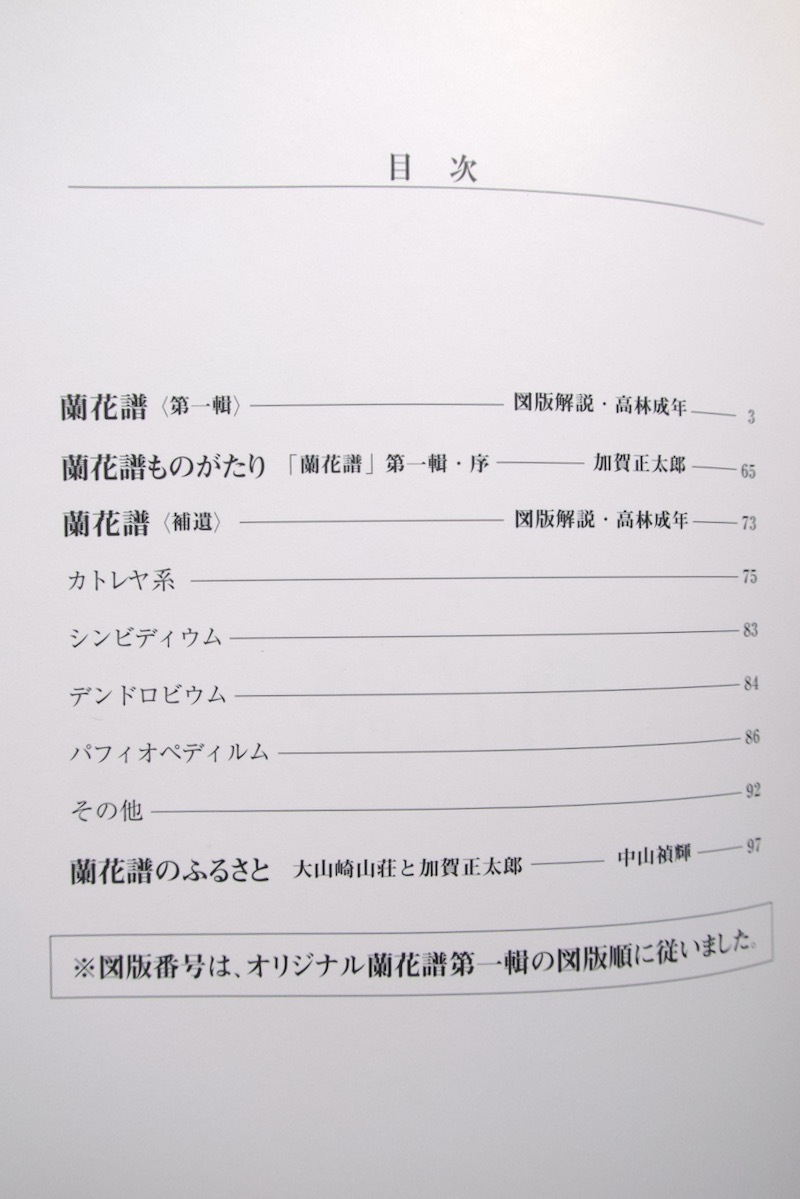 目 次
蘭花譜〈第一輯〉 図版解説・高林成年 3
蘭花譜ものがたり 「蘭花譜」第一輯・序 加賀正太郎 65
蘭花譜〈補遺〉 図版解説・高林成年 73
カトレヤ系 75
シンビディウム 83
デンドロビウム 84
パフィオペディルム 86
その他 92
蘭花譜のふるさと 大山崎山荘と加賀正太郎 中山禎輝 97
※図版番号は、オリジナル蘭花譜第一輯の図版順に従いました。